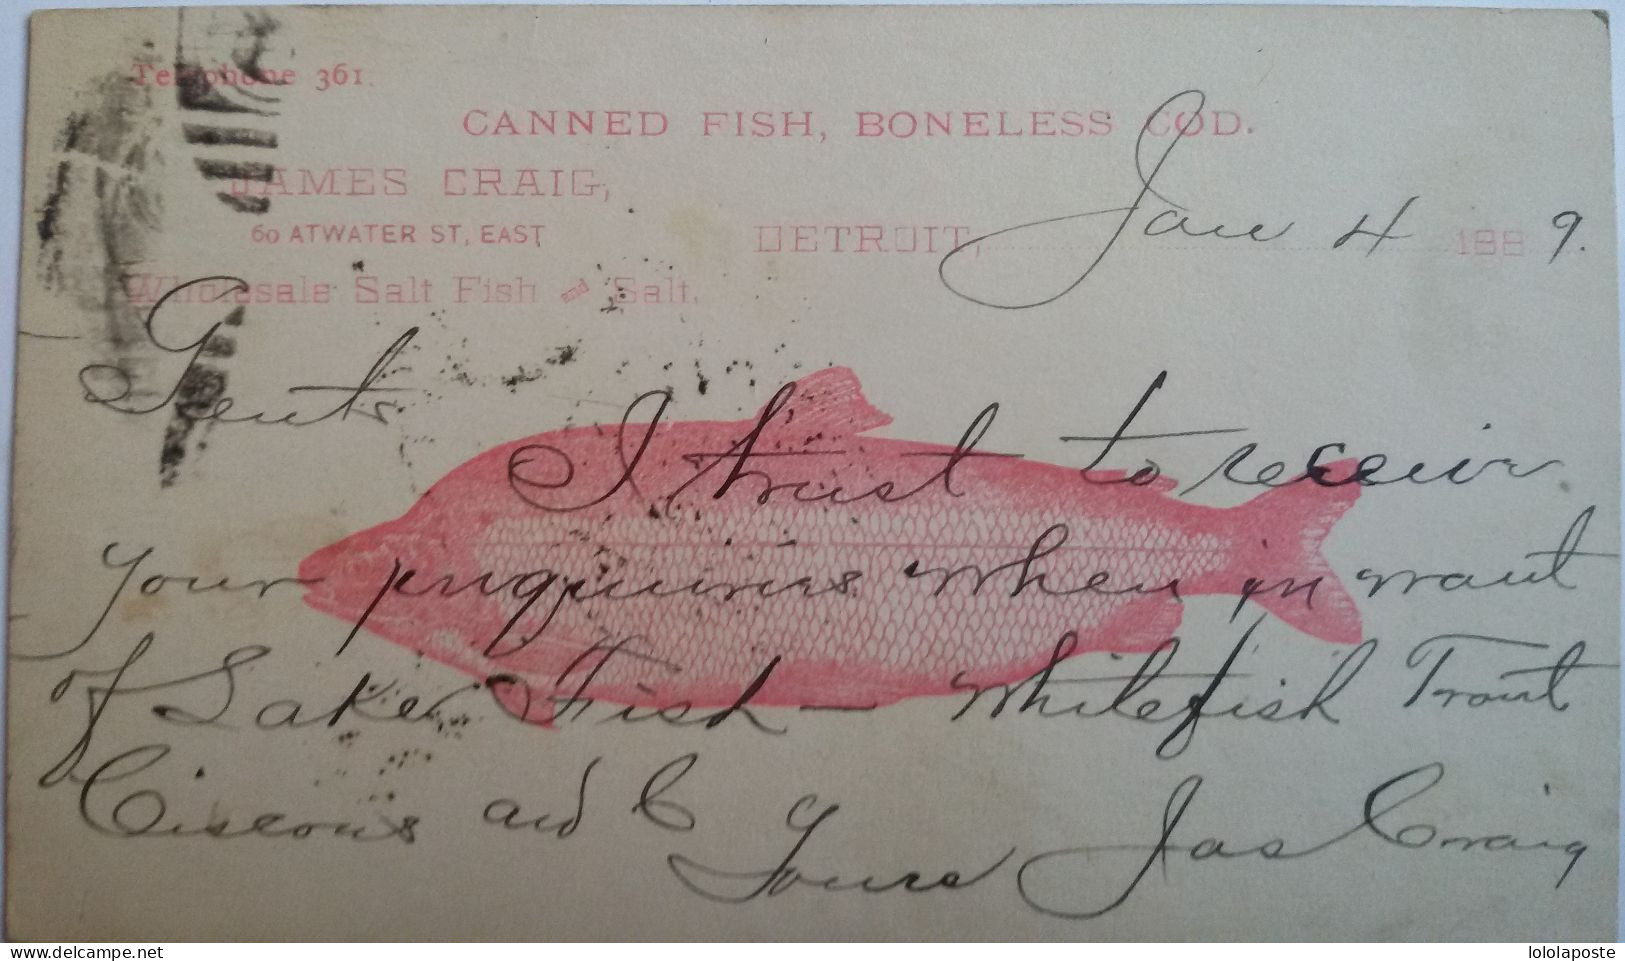 Telephone 361.
CANNED FISH, BONELESS COD.
JAMES CRAIG,
60 ATWATER ST, EAST
DETROIT, Jan 4 1889.
Wholesale Salt Fish and Salt.
Gents
I trust to receive
your inquiries when in want
of Lake Fish - Whitefish Trout
Ciscous and C
Yours Jas Craig
www.delcampe.net
lololaposte